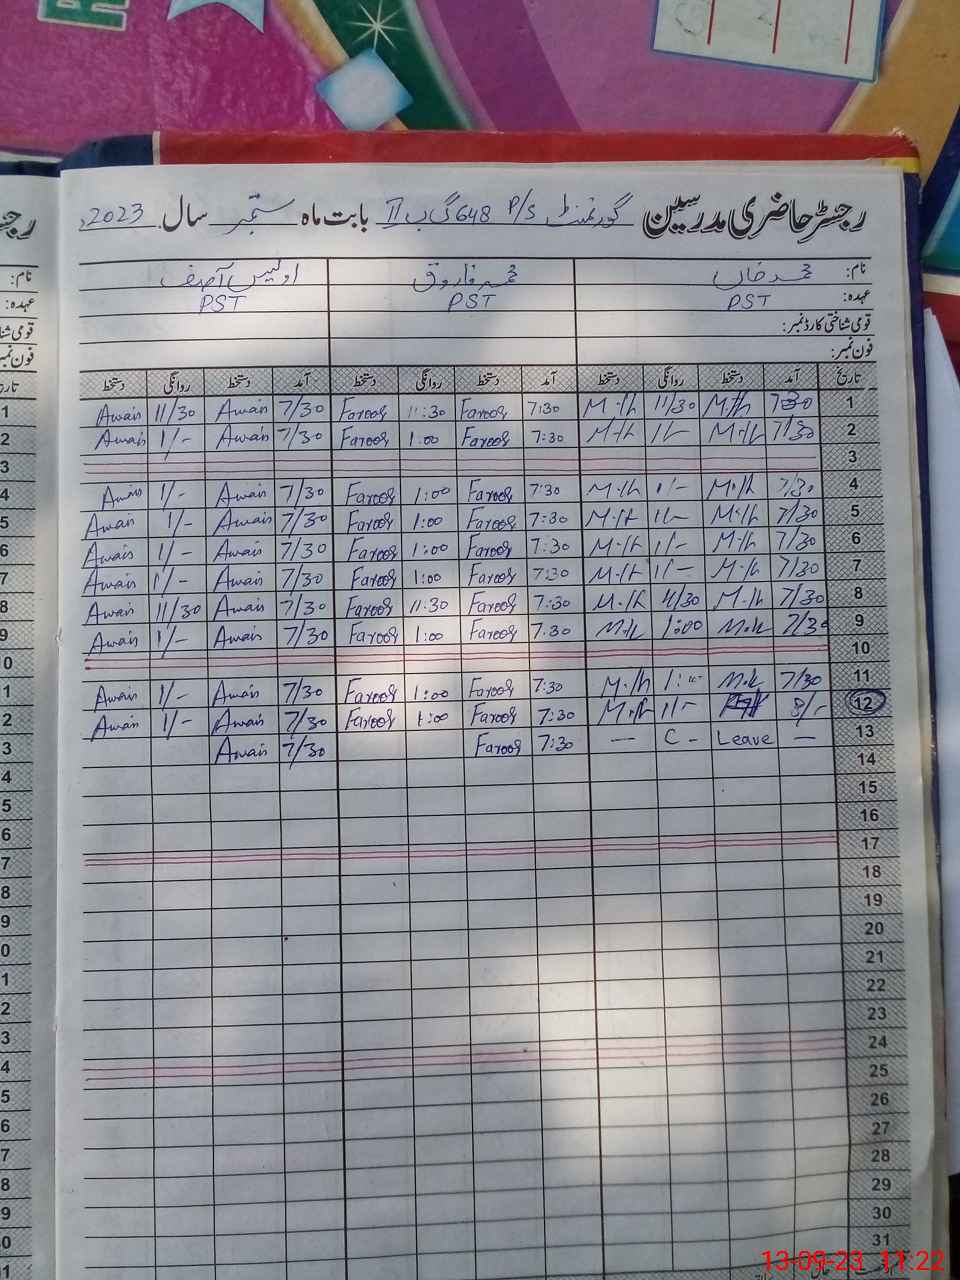 رجسٹر حاضری مدرسین گورنمنٹ P/S 648 گ ب II بابت ماہ ستمبر سال 2023ء
نام: محمد خاں محمد فاروق اویس آصف
عہدہ: PST PST PST
قومی شناختی کارڈ نمبر:
فون نمبر:
تاریخ آمد دستخط روانگی دستخط آمد دستخط روانگی دستخط آمد دستخط روانگی دستخط
1 7:30 M.h 11/30 M.h 7:30 Farooq 11:30 Farooq 7/30 Awais 11/30 Awais
2 7/30 M.h 1/- M.h 7:30 Farooq 1:00 Farooq 7/30 Awais 1/- Awais
3
4 7/30 M.h 1/- M.h 7:30 Farooq 1:00 Farooq 7/30 Awais 1/- Awais
5 7/30 M.h 1/- M.h 7:30 Farooq 1:00 Farooq 7/30 Awais 1/- Awais
6 7/30 M.h 1/- M.h 7:30 Farooq 1:00 Farooq 7/30 Awais 1/- Awais
7 7/30 M.h 1/- M.h 7:30 Farooq 1:00 Farooq 7/30 Awais 1/- Awais
8 7/30 M.h 11/30 M.h 7:30 Farooq 11:30 Farooq 7/30 Awais 11/30 Awais
9 7/30 M.k 1:00 M.k 7:30 Farooq 1:00 Farooq 7/30 Awais 1/- Awais
10
11 7/30 M.k 1:00 M.h 7:30 Farooq 1:00 Farooq 7/30 Awais 1/- Awais
12 8/- 1/- M.h 7:30 Farooq 1:00 Farooq 7/30 Awais 1/- Awais
13 — Leave C - — 7:30 Farooq 7/30 Awais
14
15
16
17
18
19
20
21
22
23
24
25
26
27
28
29
30
31
13-09-23 11:22